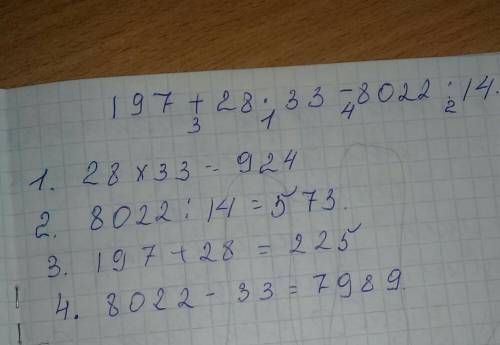 197 + 28 · 33 - 8022 : 14.
3 1 4 2
1. 28 × 33 = 924
2. 8022 : 14 = 573.
3. 197 + 28 = 225
4. 8022 - 33 = 7989.